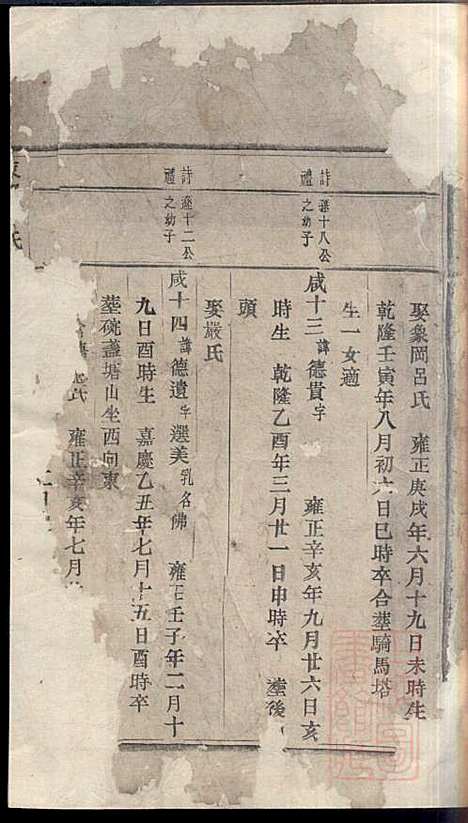 娶象岡呂氏 雍正庚戌年六月十九日未時生
乾隆壬寅年八月初六日巳時卒合塟騎馬塔
生一女適
詩禮
遜十八公之幼子
咸十三諱德貴字 雍正辛亥年九月廿六日亥
時生 乾隆乙酉年三月廿一日申時卒 塟後
頭
娶嚴氏
詩禮
遜十二公之幼子
咸十四諱德遺字選美乳名佛 雍正壬子年二月十
九日酉時生 嘉慶乙丑年七月十五日酉時卒
塟碗盞塘山坐西向東
氏 雍正辛亥年七月
氏